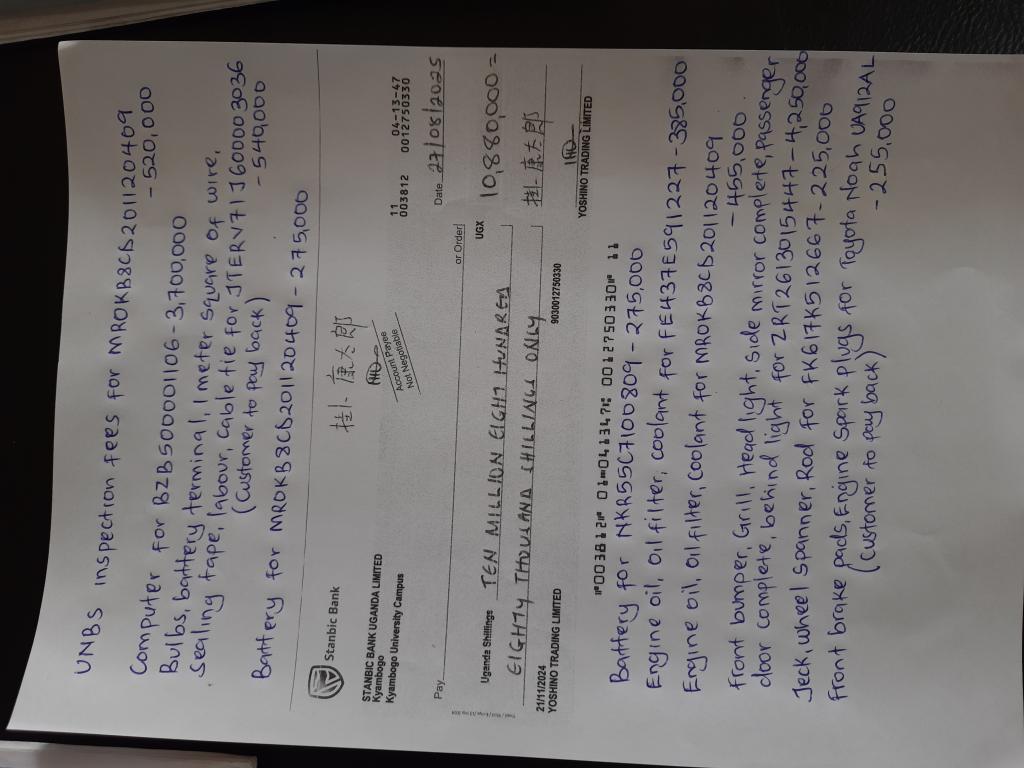 UNBS inspection fees for MROKB8CD201120409
- 520,000
Computer for BZB5000001106 - 3,700,000
Bulbs, battery terminal, 1 meter square of wire,
Sealing tape, labour, cable tie for JTERV71J600003036
(Customer to pay back) - 540,000
Battery for MROKB8CD201120409 - 275,000
Stanbic Bank
掛 康太郎
STANBIC BANK UGANDA LIMITED
Kyambogo
Kyambogo University Campus
11 04-13-47
003812 0012750330
Account Payee
Not Negotiable
Date 27/08/2025
Pay
or Order
Uganda Shillings TEN MILLION EIGHT HUNDRED
UGX 10,880,000=
EIGHTY THOUSAND SHILLINGS ONLY
掛 康太郎
21/11/2024
YOSHINO TRADING LIMITED
9030012750330
YOSHINO TRADING LIMITED
"003812" 01=041347: 0012750330" 11
Battery for NKR55C7100809 - 275,000
Engine oil, oil filter, coolant for FE437E591227 - 385,000
Engine oil, oil filter, coolant for MROKB8CD201120409
- 455,000
Front bumper, Grill, Head light, side mirror complete, passenger
door complete, behind light for ZRT2613015447 - 4,250,000
Jeck, wheel spanner, Rod for FK617K512667 - 225,000
Front brake pads, Engine Spark plugs for Toyota Noah UA912AL
(Customer to pay back) - 255,000